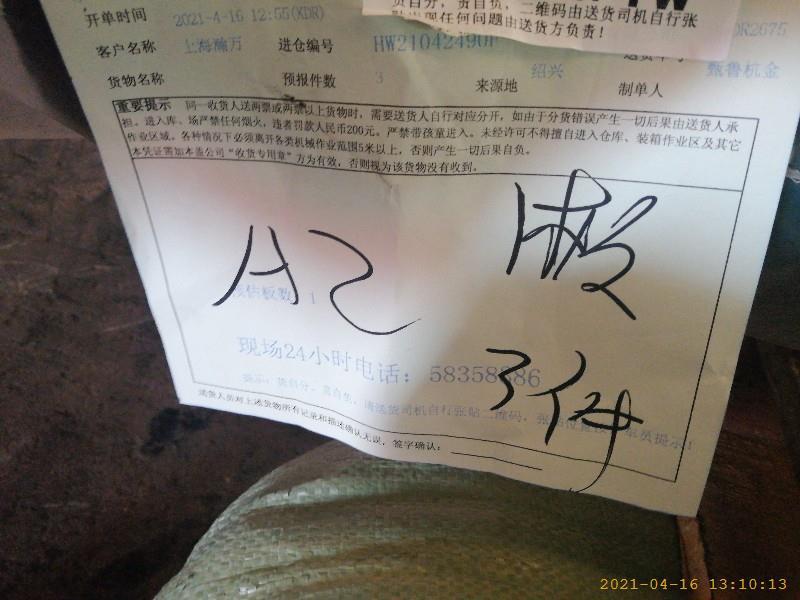 页自分，责自负，二维码由送货司机自行张
任何问题由送货方负责！
开单时间 2021-4-16 12:55(KDR)
DR2675
客户名称 上海瀚万 进仓编号 HW2104249
甄鲁杭金
货物名称 预报件数 3 来源地 绍兴 制单人
重要提示 同一收货人送两票或两票以上货物时，需要送货人自行对应分开，如由于分货错误产生一切后果由送货人承
担。进入库、场严禁任何烟火，违者罚款人民币200元。严禁带孩童进入。未经许可不得擅自进入仓库、装箱作业区及其它
作业区域。各种情况下必须离开各类机械作业范围5米以上，否则产生一切后果自负。
本凭证需加本盖公司“收货专用章”方为有效，否则视为该货物没有收到。
A2
预估板数：1
现场24小时电话：58358886
3件
提示：货自分，责自负，请送货司机自行张贴二维码，
送货人员对上述货物所有记录和描述确认无误，签字确认：
2021-04-16 13:10:13